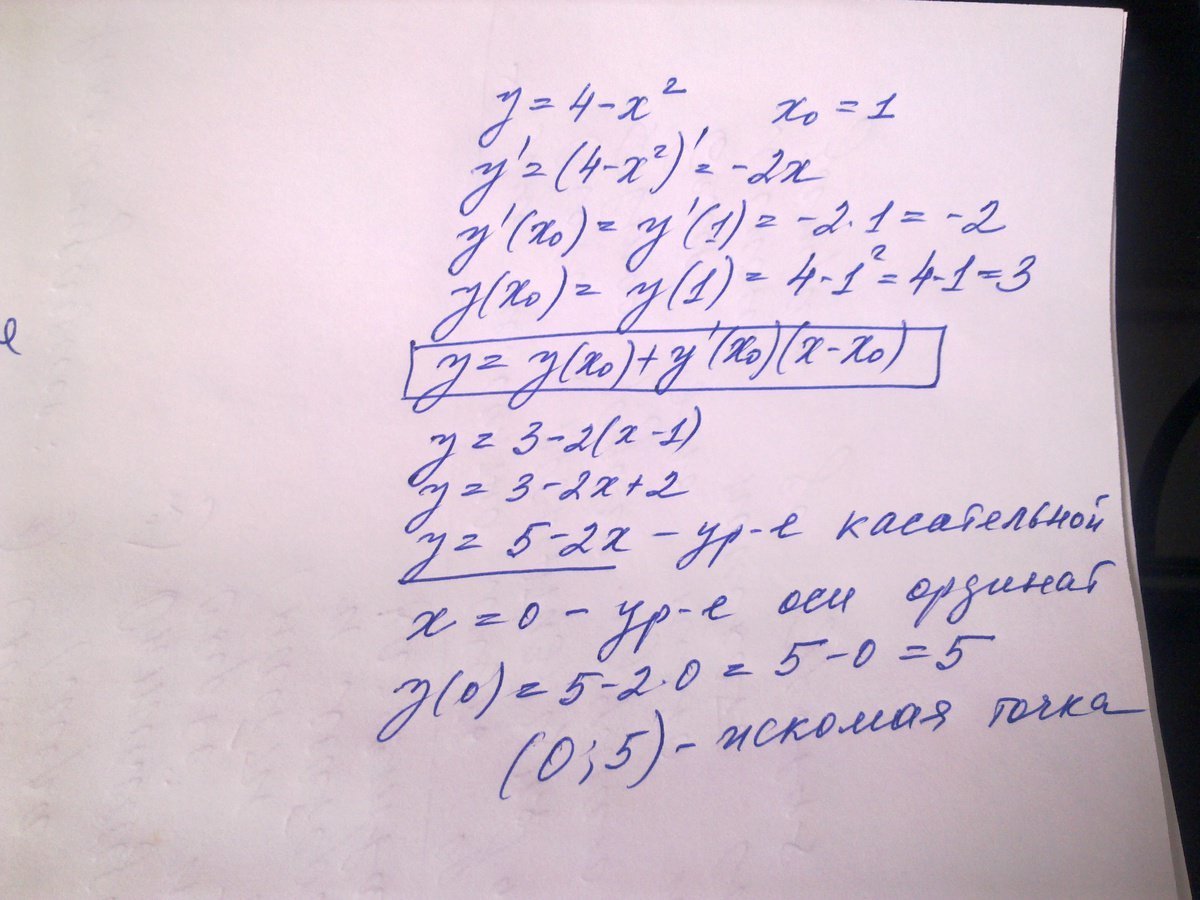 y = 4-x² x₀ = 1
y' = (4-x²)' = -2x
y'(x₀) = y'(1) = -2·1 = -2
y(x₀) = y(1) = 4-1² = 4-1 = 3
y = y(x₀) + y'(x₀)(x-x₀)
y = 3-2(x-1)
y = 3-2x+2
y = 5-2x - ур-е касательной
x = 0 - ур-е оси ординат
y(0) = 5-2·0 = 5-0 = 5
(0;5) - искомая точка